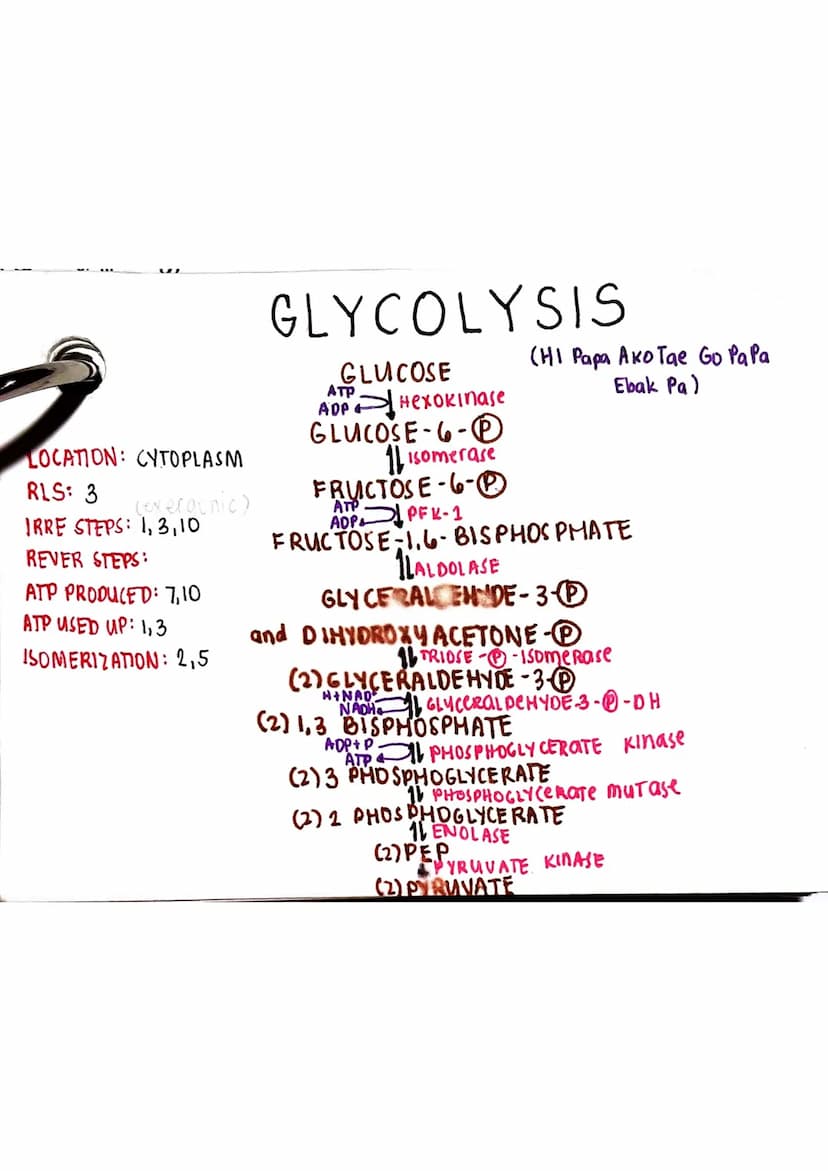 GLYCOLYSIS
(HI Papa AKO Tae Go PaPa
Ebak Pa)
GLUCOSE
ATP
ADP
HEXOKINASE
GLUCOSE-6-P
ISOMERASE
FRUCTOSE-6-P
ATP
ADP
PFK-1
FRUCTOSE-1,6-BISPHOSPHATE
ALDOLASE
GLYCERALDEHYDE-3-P
and DIHYDROXYACETONE-P
TRIOSE-P-ISOMERASE
(2) GLYCERALDEHYDE-3-P
H+NAD+
NADH
GLYCERALDEHYDE-3-P-DH
(2) 1,3 BISPHOSPHATE
ADP+P
ATP
PHOSPHOGLYCERATE KINASE
(2) 3 PHOSPHOGLYCERATE
PHOSPHOGLYCERATE MUTASE
(2) 2 PHOSPHOGLYCERATE
ENOLASE
(2) PEP
PYRUVATE KINASE
(2) PYRUVATE
LOCATION: CYTOPLASM
RLS: 3
IRRE STEPS: 1,3,10
REVER STEPS:
ATP PRODUCED: 7,10
ATP USED UP: 1,3
ISOMERIZATION: 2,5